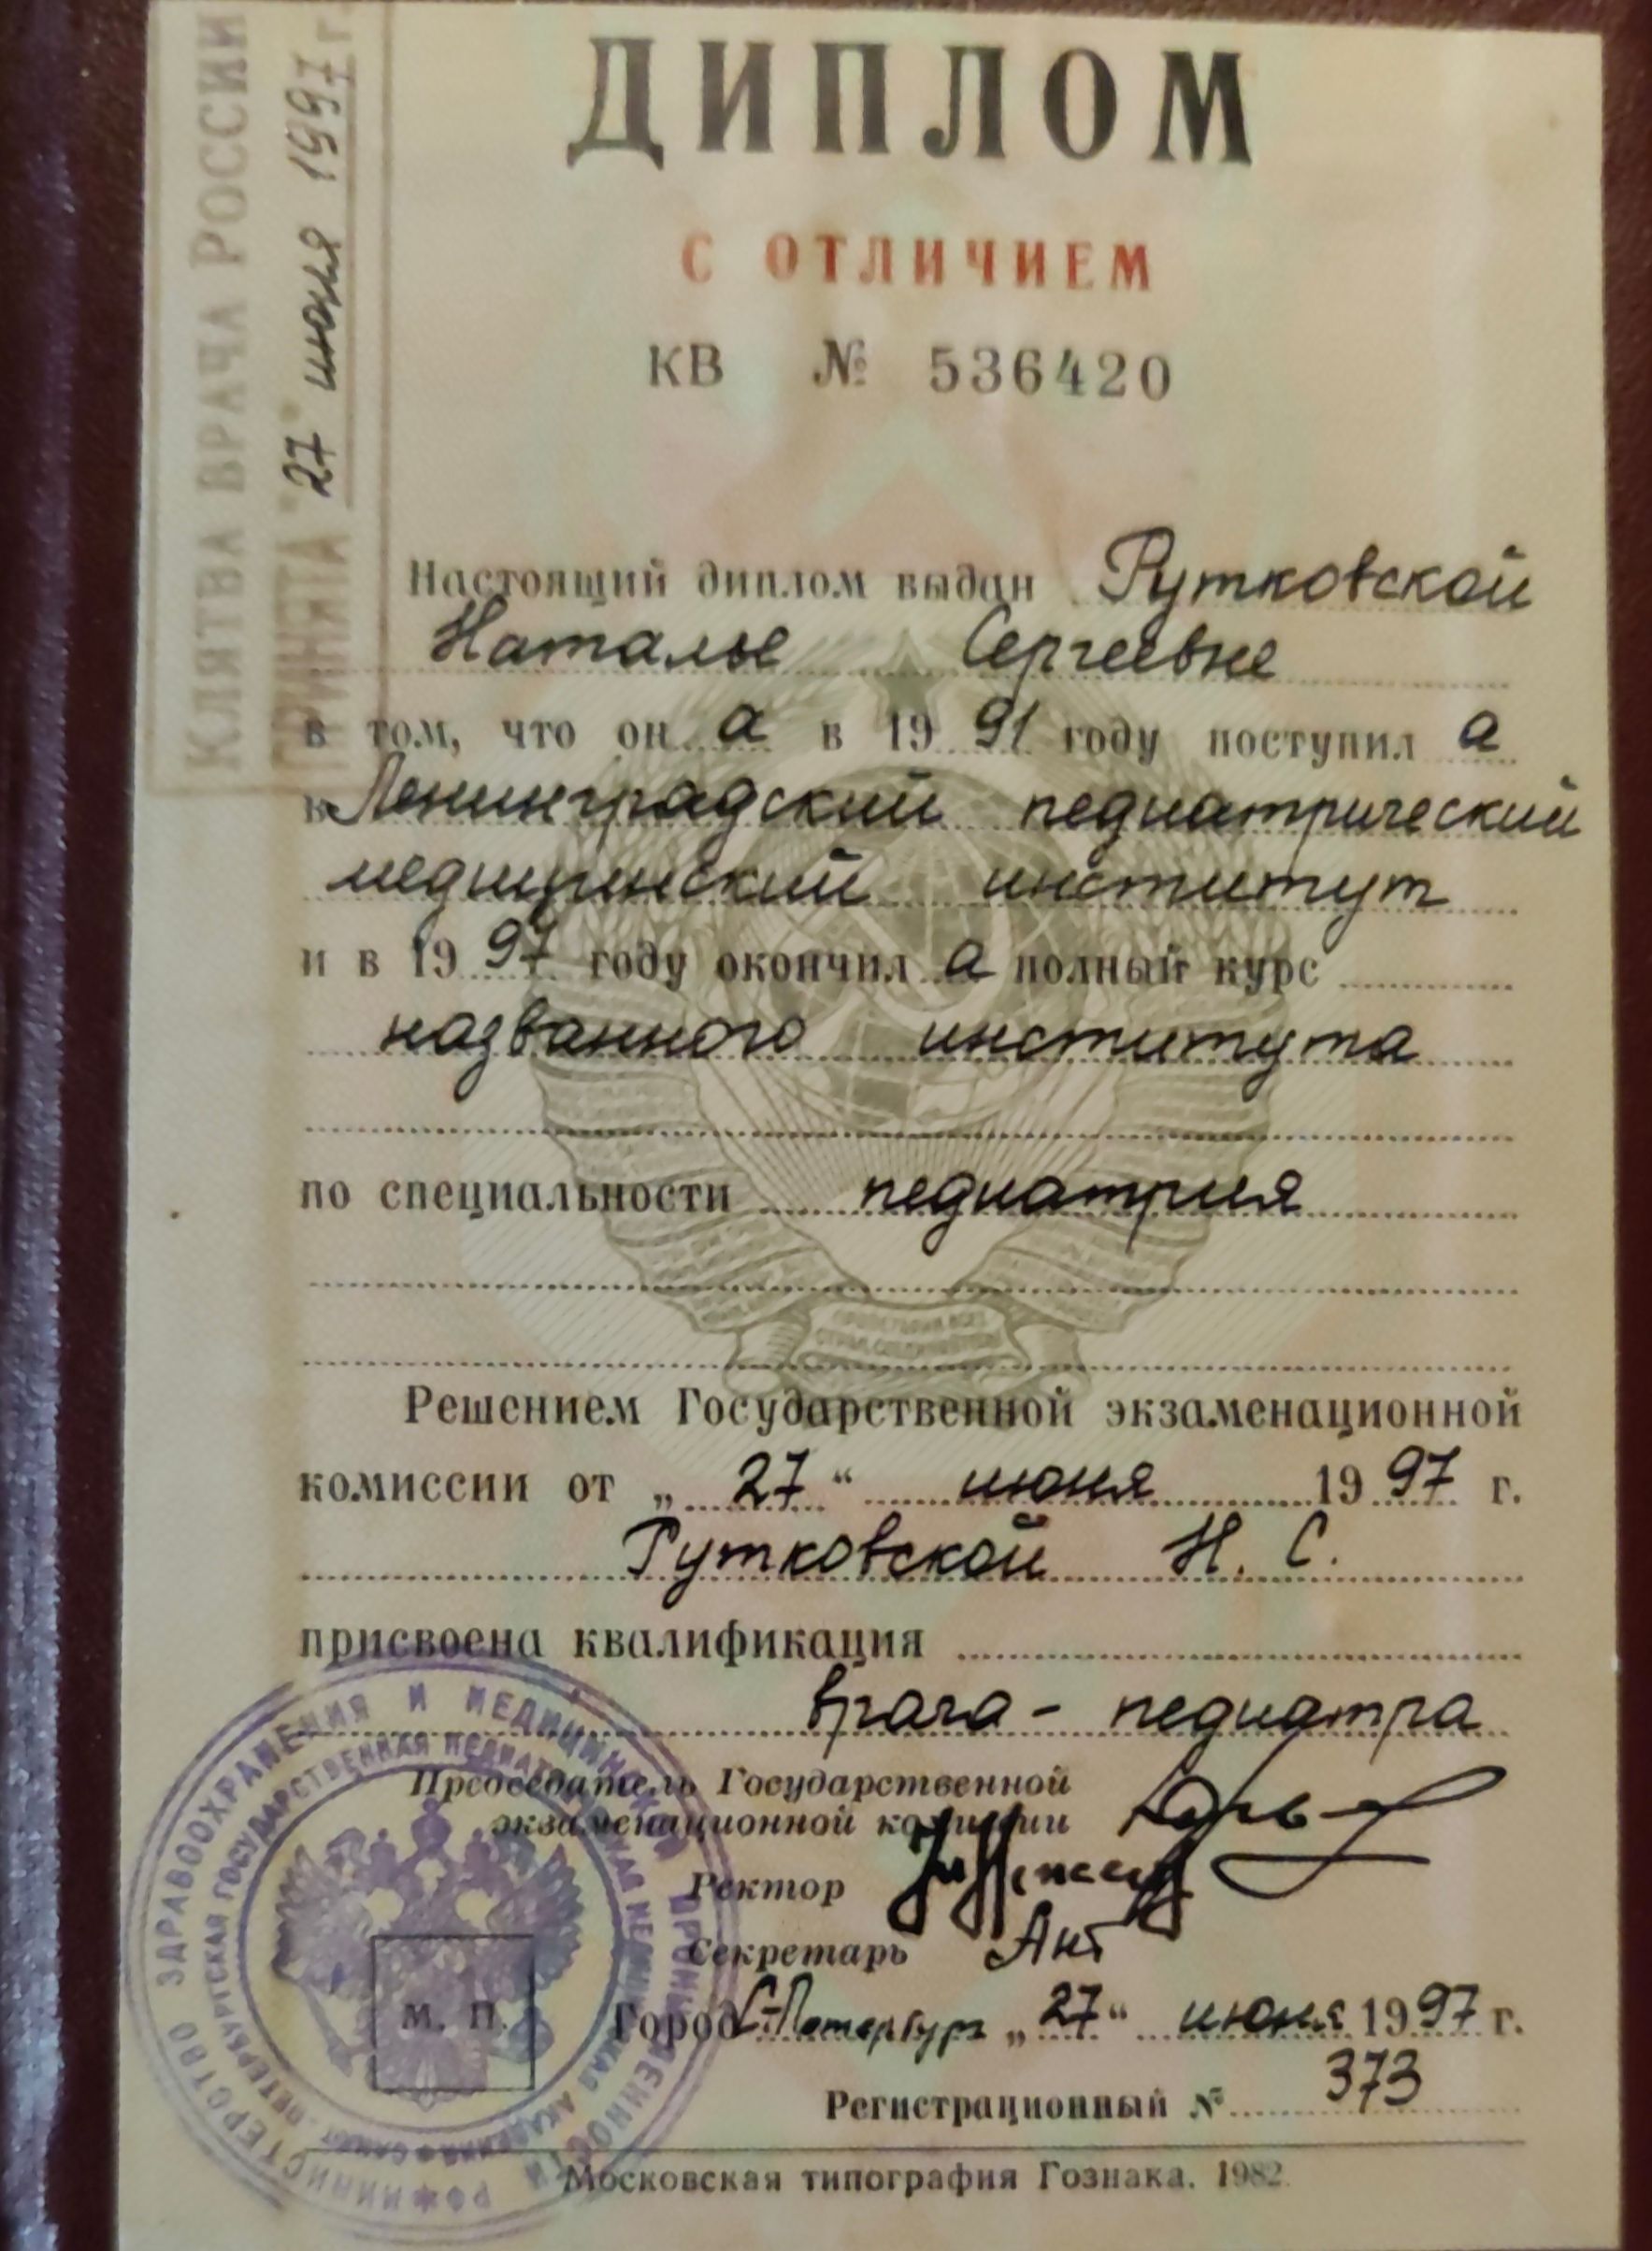 КЛЯТВА ВРАЧА РОССИИ
ПРИНЯТА "27" июня 1997 г.
ДИПЛОМ
С ОТЛИЧИЕМ
КВ № 536420
Настоящий диплом выдан Рутковской
Наталье Сергеевне
в том, что он а в 19 91 году поступил а
в Ленинградский педиатрический
медицинский институт
и в 19 97 году окончил а полный курс
названного института
по специальности педиатрия
ПРОЛЕТАРИИ ВСЕХ
СТРАН, СОЕДИНЯЙТЕСЬ!
Решением Государственной экзаменационной
комиссии от „ 27 “ июня 19 97 г.
Рутковской Н. С.
присвоена квалификация
врача - педиатра
Председатель Государственной
экзаменационной комиссии
Ректор
Секретарь
Город С-Петербург „ 27 “ июня 19 97 г.
Регистрационный № 373
М. П.
МИНИСТЕРСТВО ЗДРАВООХРАНЕНИЯ И МЕДИЦИНСКОЙ ПРОМЫШЛЕННОСТИ РФ
САНКТ-ПЕТЕРБУРГСКАЯ ГОСУДАРСТВЕННАЯ ПЕДИАТРИЧЕСКАЯ МЕДИЦИНСКАЯ АКАДЕМИЯ
Московская типография Гознака. 1982.